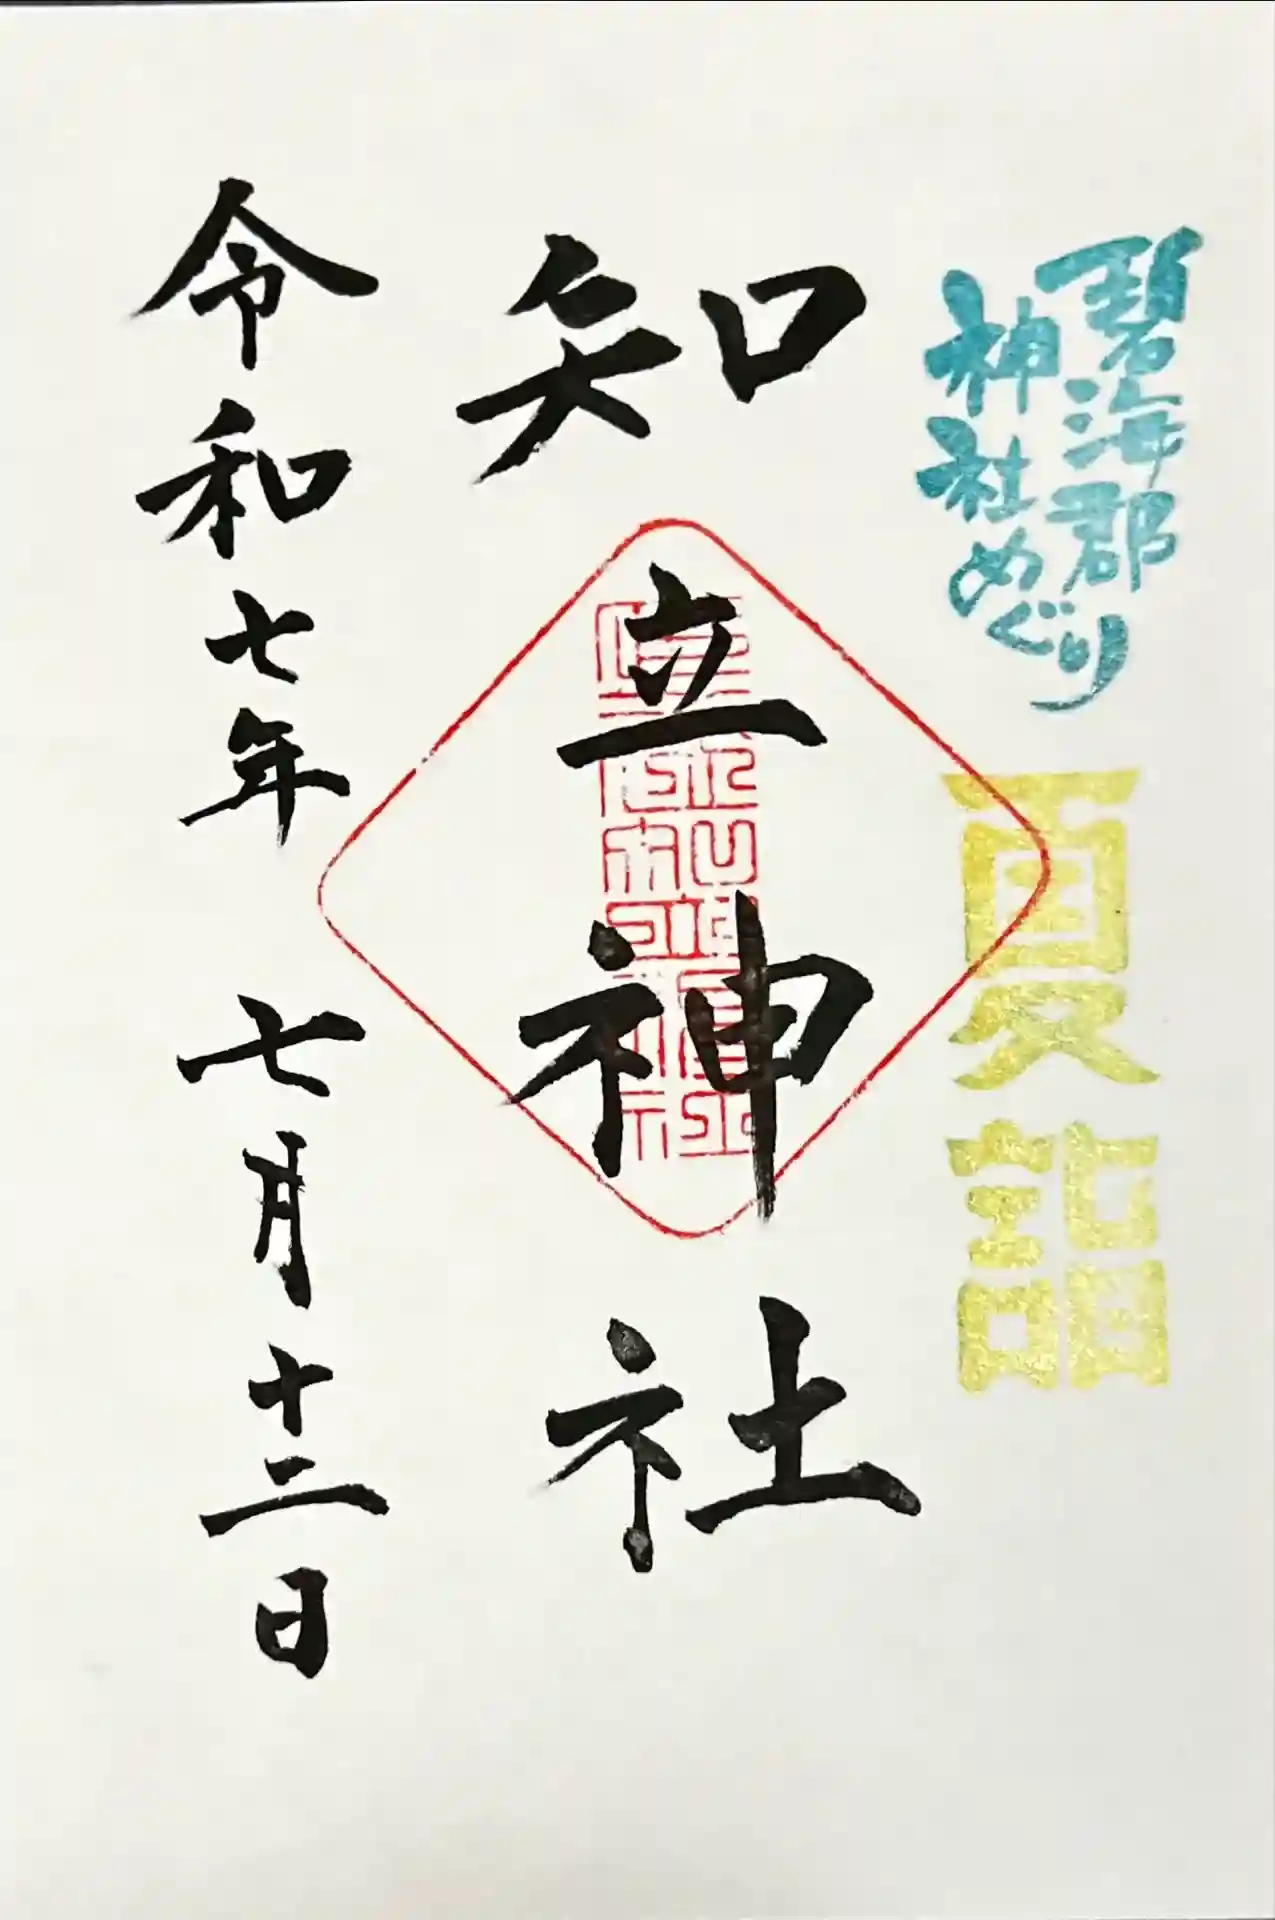 碧海郡
神社めぐり
夏詣
知立神社
令和七年 七月十二日